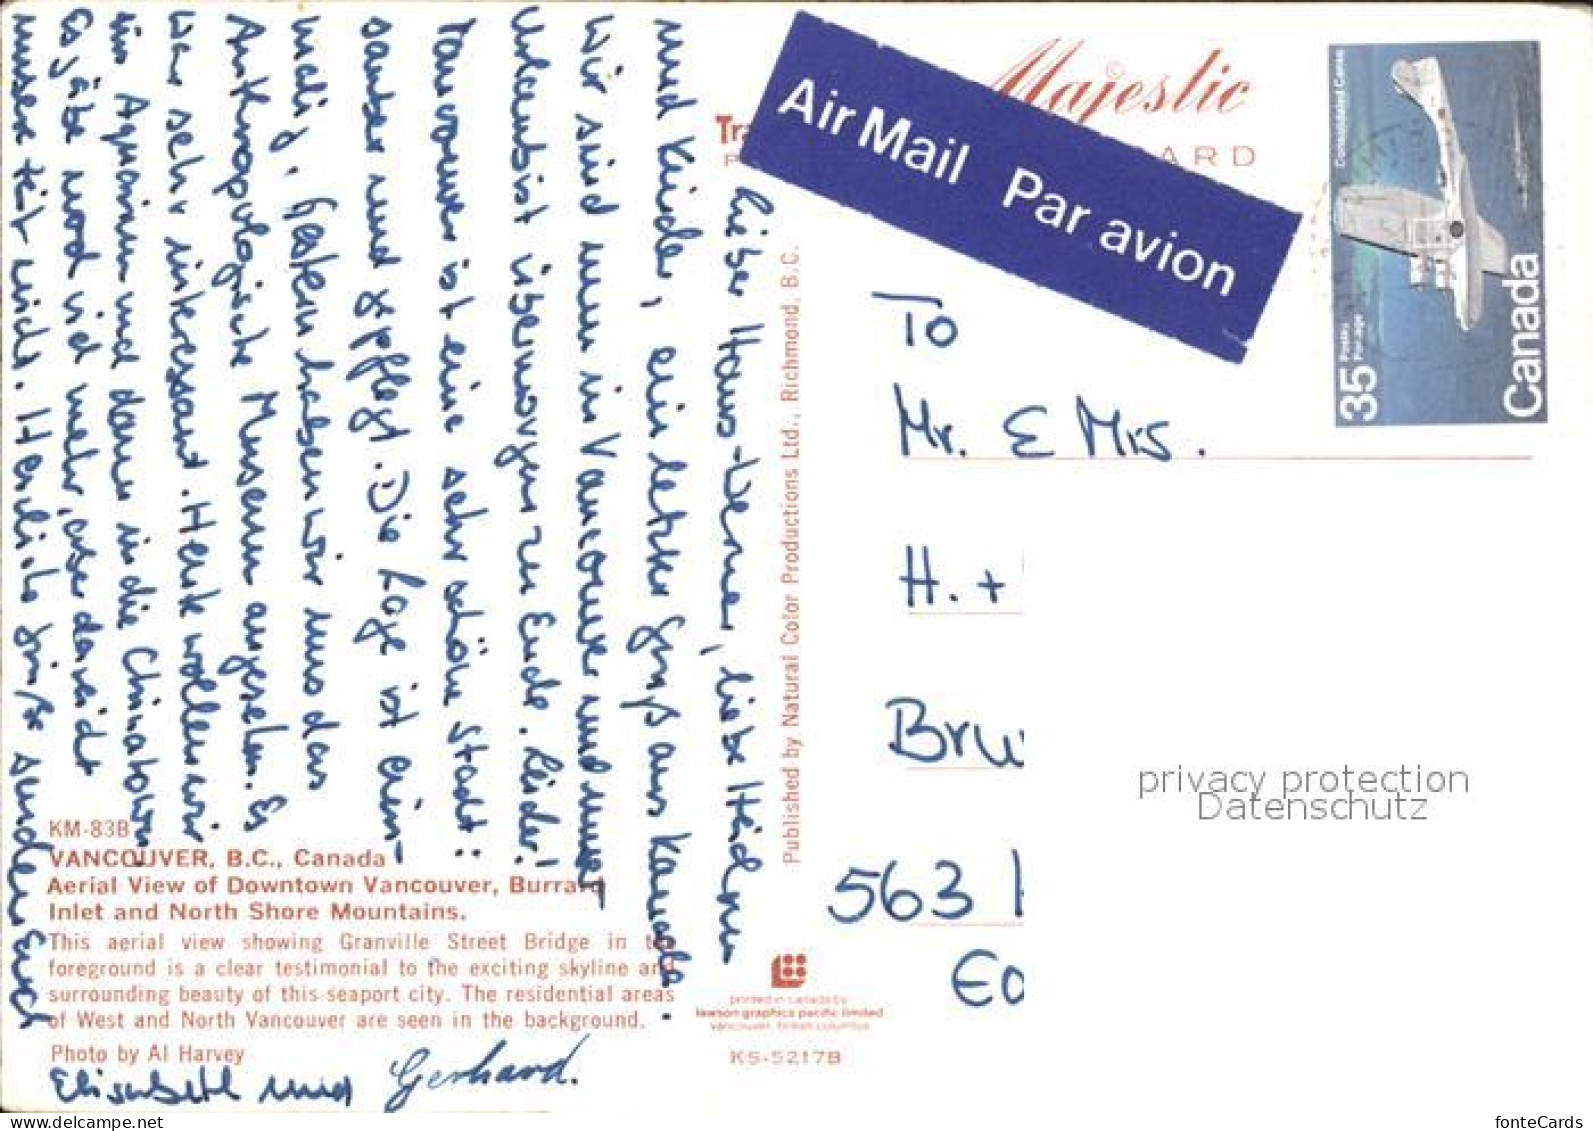 Lieber Hans-Werner, liebe Heidrun
und Kinder, ein letzter Gruß aus Kanada.
Wir sind nun in Vancouver und unser
Urlaub ist übermorgen zu Ende. Leider!
Vancouver ist eine sehr schöne Stadt:
sauber und gepflegt. Die Lage ist ein-
malig. Gestern haben wir uns das
Anthropologische Museum angesehen. Es
war sehr interessant. Heute wollen wir
ins Aquarium und dann in die Chinatown.
Es gäbe noch viel mehr, aber da reicht
unsere Zeit nicht. Herzliche Grüße senden Euch
Elisabeth und Gerhard.
KM-83B
VANCOUVER, B.C., Canada
Aerial View of Downtown Vancouver, Burrard
Inlet and North Shore Mountains.
This aerial view showing Granville Street Bridge in the
foreground is a clear testimonial to the exciting skyline and
surrounding beauty of this seaport city. The residential areas
of West and North Vancouver are seen in the background.
Photo by Al Harvey
Published by Natural Color Productions Ltd., Richmond, B.C.
printed in canada by
lawson graphics pacific limited
vancouver, british columbia
KS-5217B
Majestic
Tra
ARD
Air Mail Par avion
Consolidated Canso
35 Postes Postage
Canada
To
Mr. & Mrs.
H. +
Bru
563
privacy protection
Datenschutz
www.delcampe.net
fonteCards